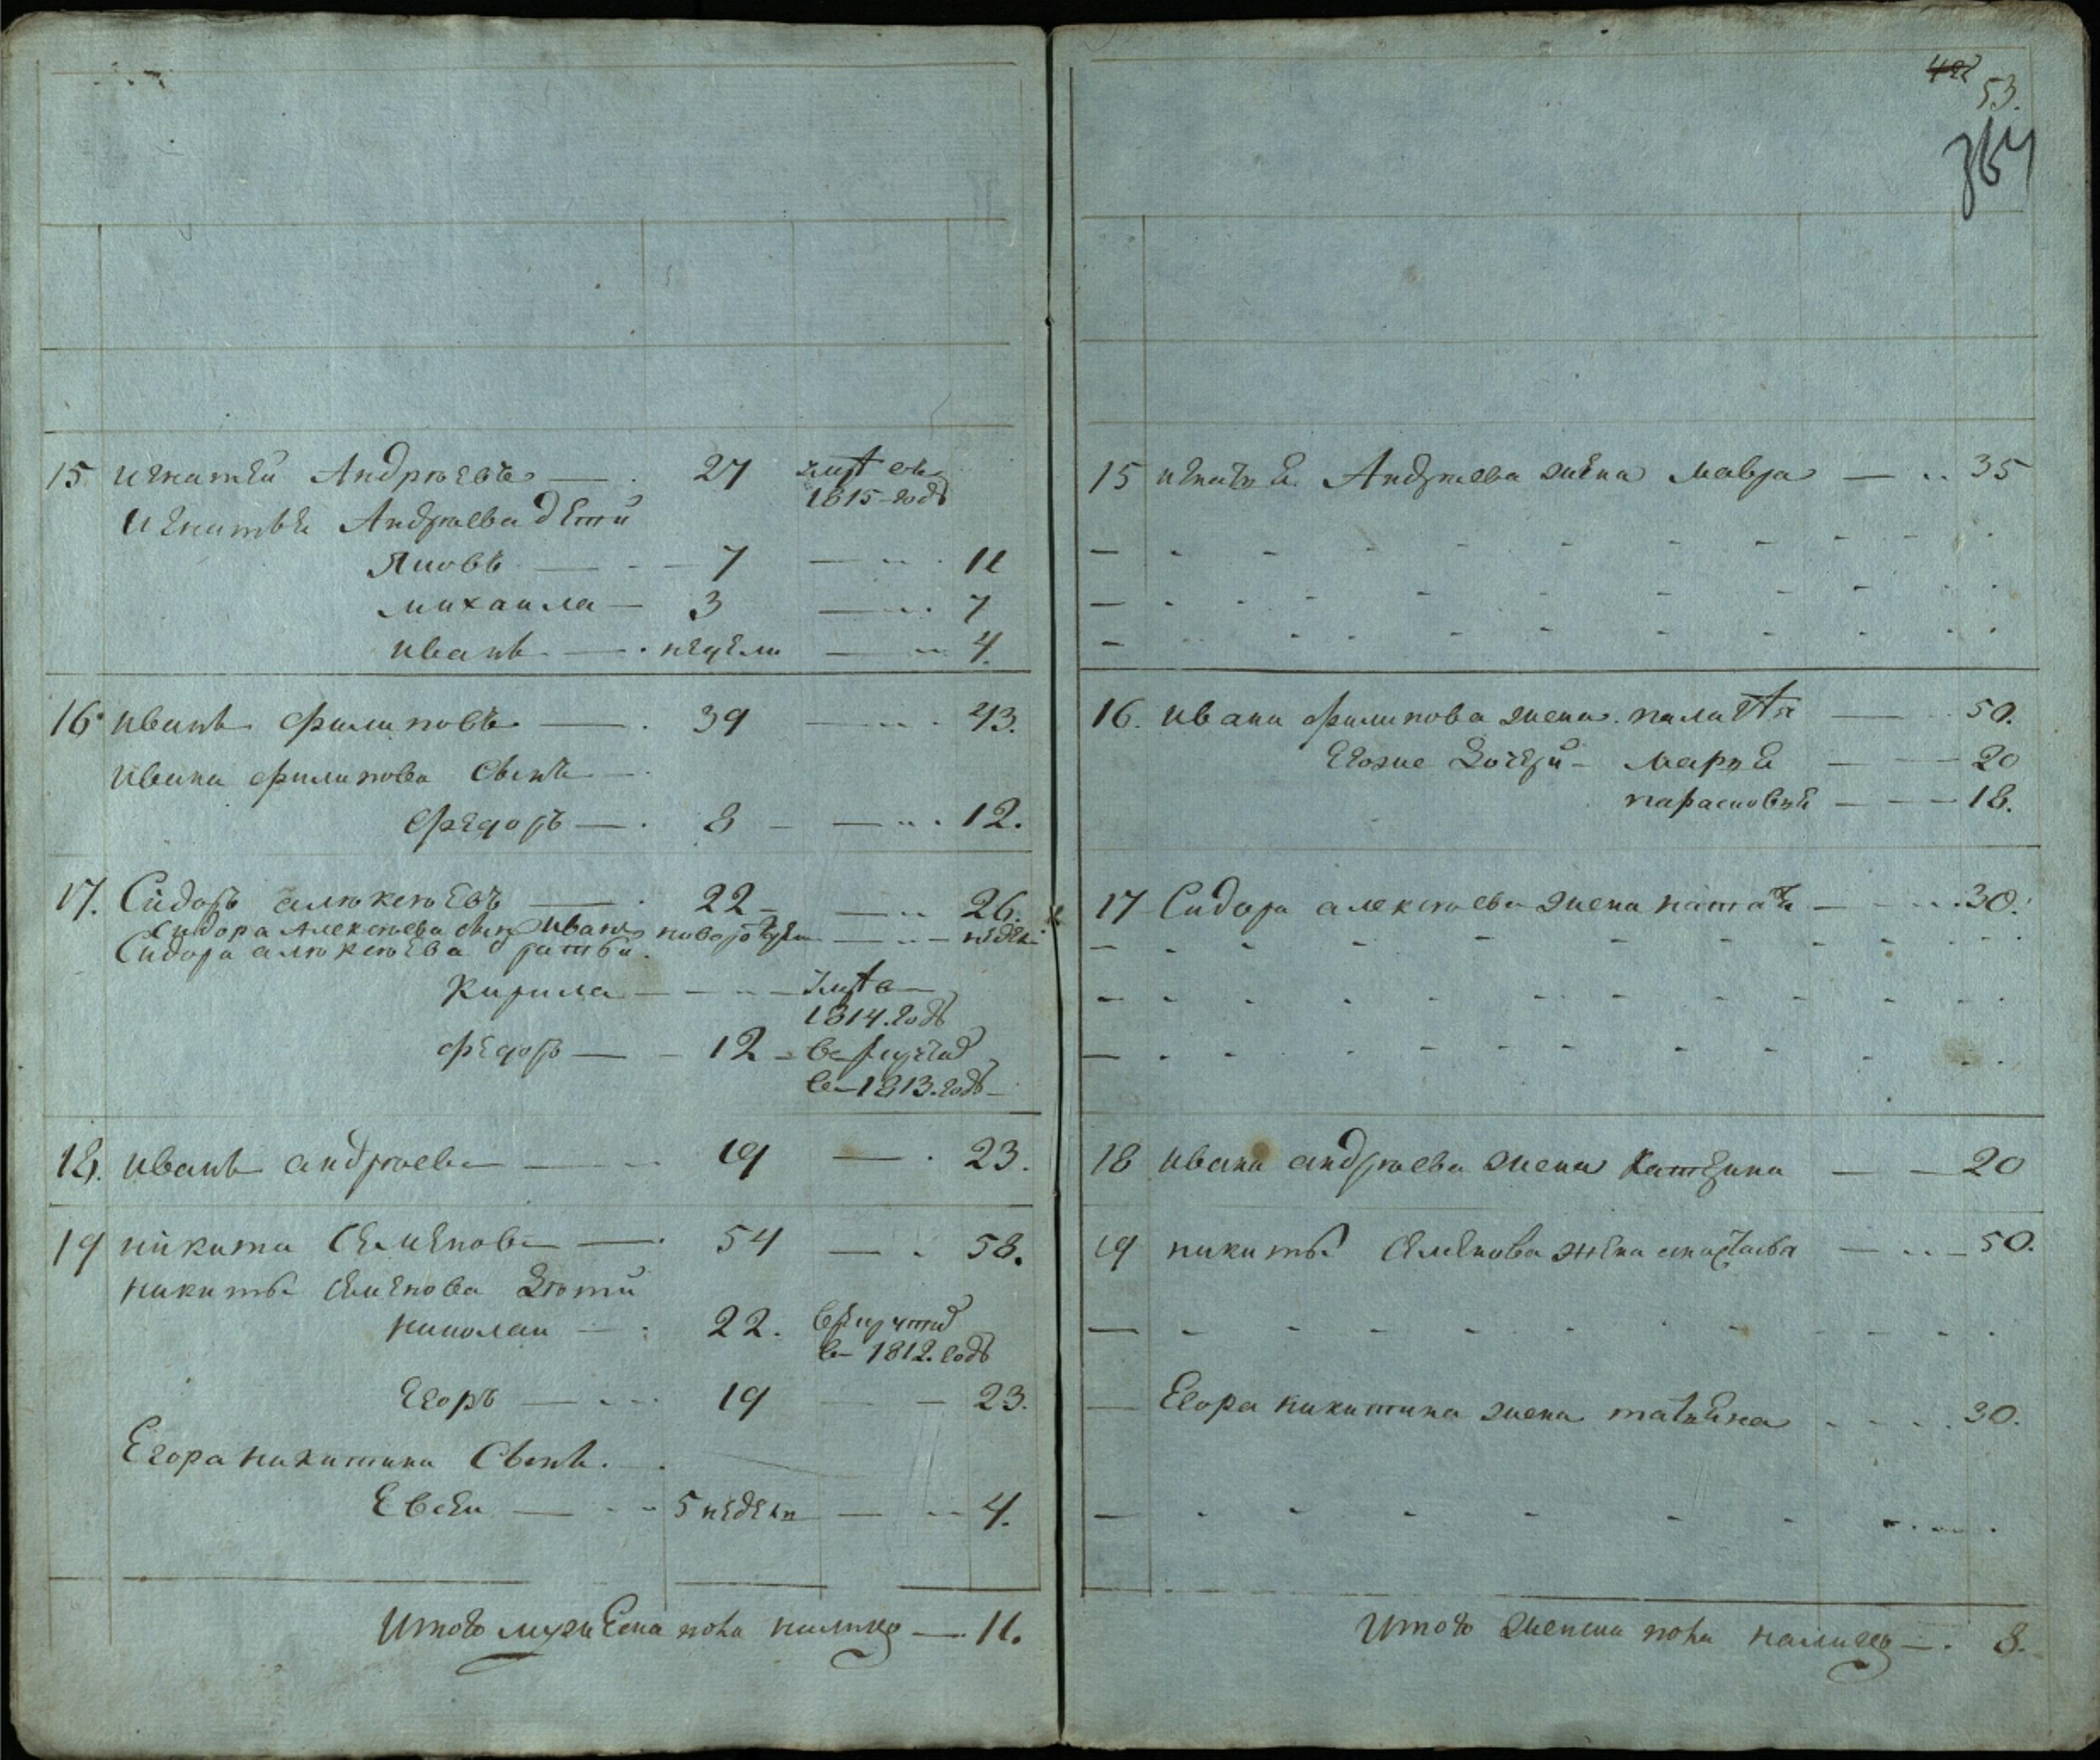 15 игнатей Андрѣевъ — 27 умре въ
1815 годѣ
Игнатья Андрѣева дети
Яковъ — 7 — 11
михаила — 3 — 7
иванъ — недели — 4.
16 иванъ филиповъ — 39 — 43.
ивана филипова сынъ
Федоръ — 8 — 12.
17. Сидоръ алѣксѣевъ — 22 — 26.
Сидора Алексѣева сынъ иванъ новорож — недели
Сидора алѣксѣева братьи.
Кирила — умре в
1814. годѣ
федоръ — 12 — в рекруты
в 1813. годѣ
18. иванъ андрѣевъ — 19 — 23.
19 никита Семеновъ — 54 — 58.
никиты Семенова дѣти
николаи — 22. в рекруты
в 1812. годѣ
Егоръ — 19 — 23.
Егора никитина сынъ.
Евсеи — 5 недель — 4.
Итого мужеска пола налицо — 11.
422
53.
364
15 игнатья Андрѣева жена мавра — 35
16. ивана филипова жена пелагея — 50.
Егоже дочери — марья — 20
парасковья — 18.
17 Сидора алексѣева жена наталья — 30.
18 ивана андрѣева жена катерина — 20
19 никиты Семенова жена настасья — 50.
Егора никитина жена татьяна — 30.
Итого женска пола налицо — 8.